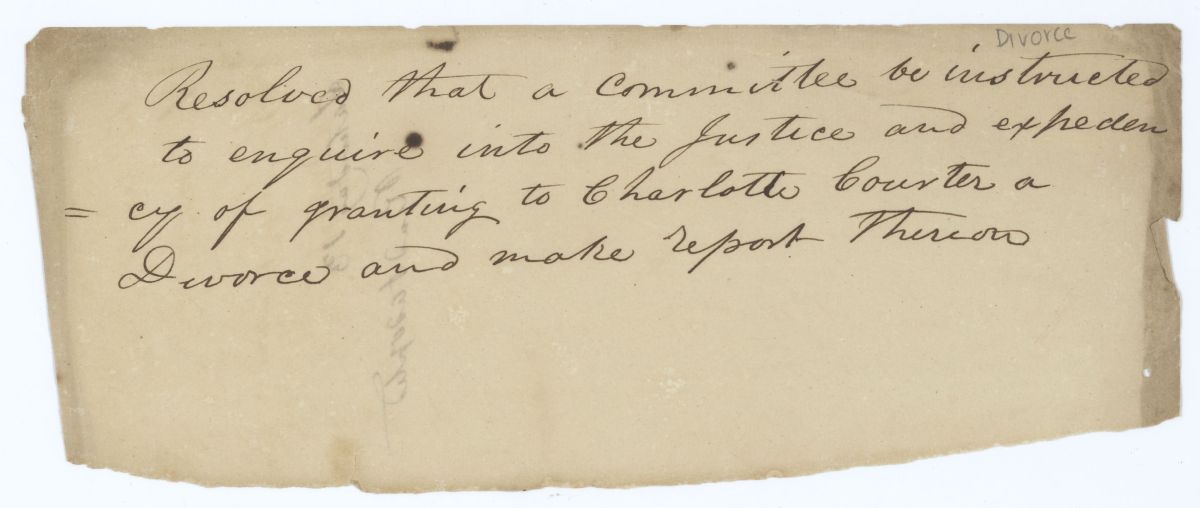 Divorce
Resolved that a committee be instructed
to enquire into the Justice and expeden
= cy of granting to Charlotte Courter a
Divorce and make report thereon